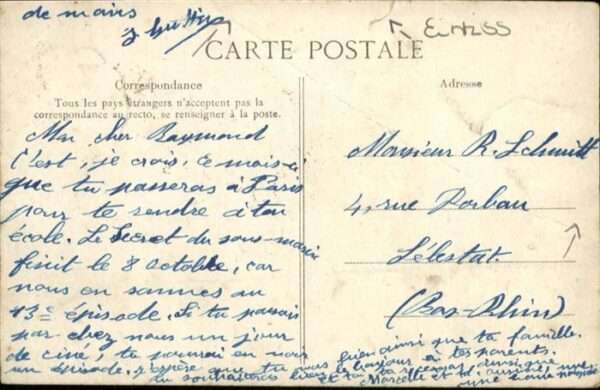 de mains
CARTE POSTALE
Correspondance
Tous les pays étrangers n'acceptent pas la
correspondance au recto, se renseigner à la poste.
Mon cher Raymond
C'est, je crois, ce mois-ci
que tu passeras à Paris
pour te rendre à ton
école. Le Secret du sous-marin
finit le 8 octobre, car
nous en sommes au
13e épisode. Si tu passais
par chez nous un jour
de ciné, tu pourrais en voir
un épisode. J'espère que tu vas bien ainsi que ta famille.
du souhaiteras bien le bonjour à tes parents.
Et toi tu recevras
Marcelle et d'amitié, une
une bonne poignée
Adresse
Monsieur R. Schmitt
4, rue Dorlan
Sélestat.
(Bas-Rhin)